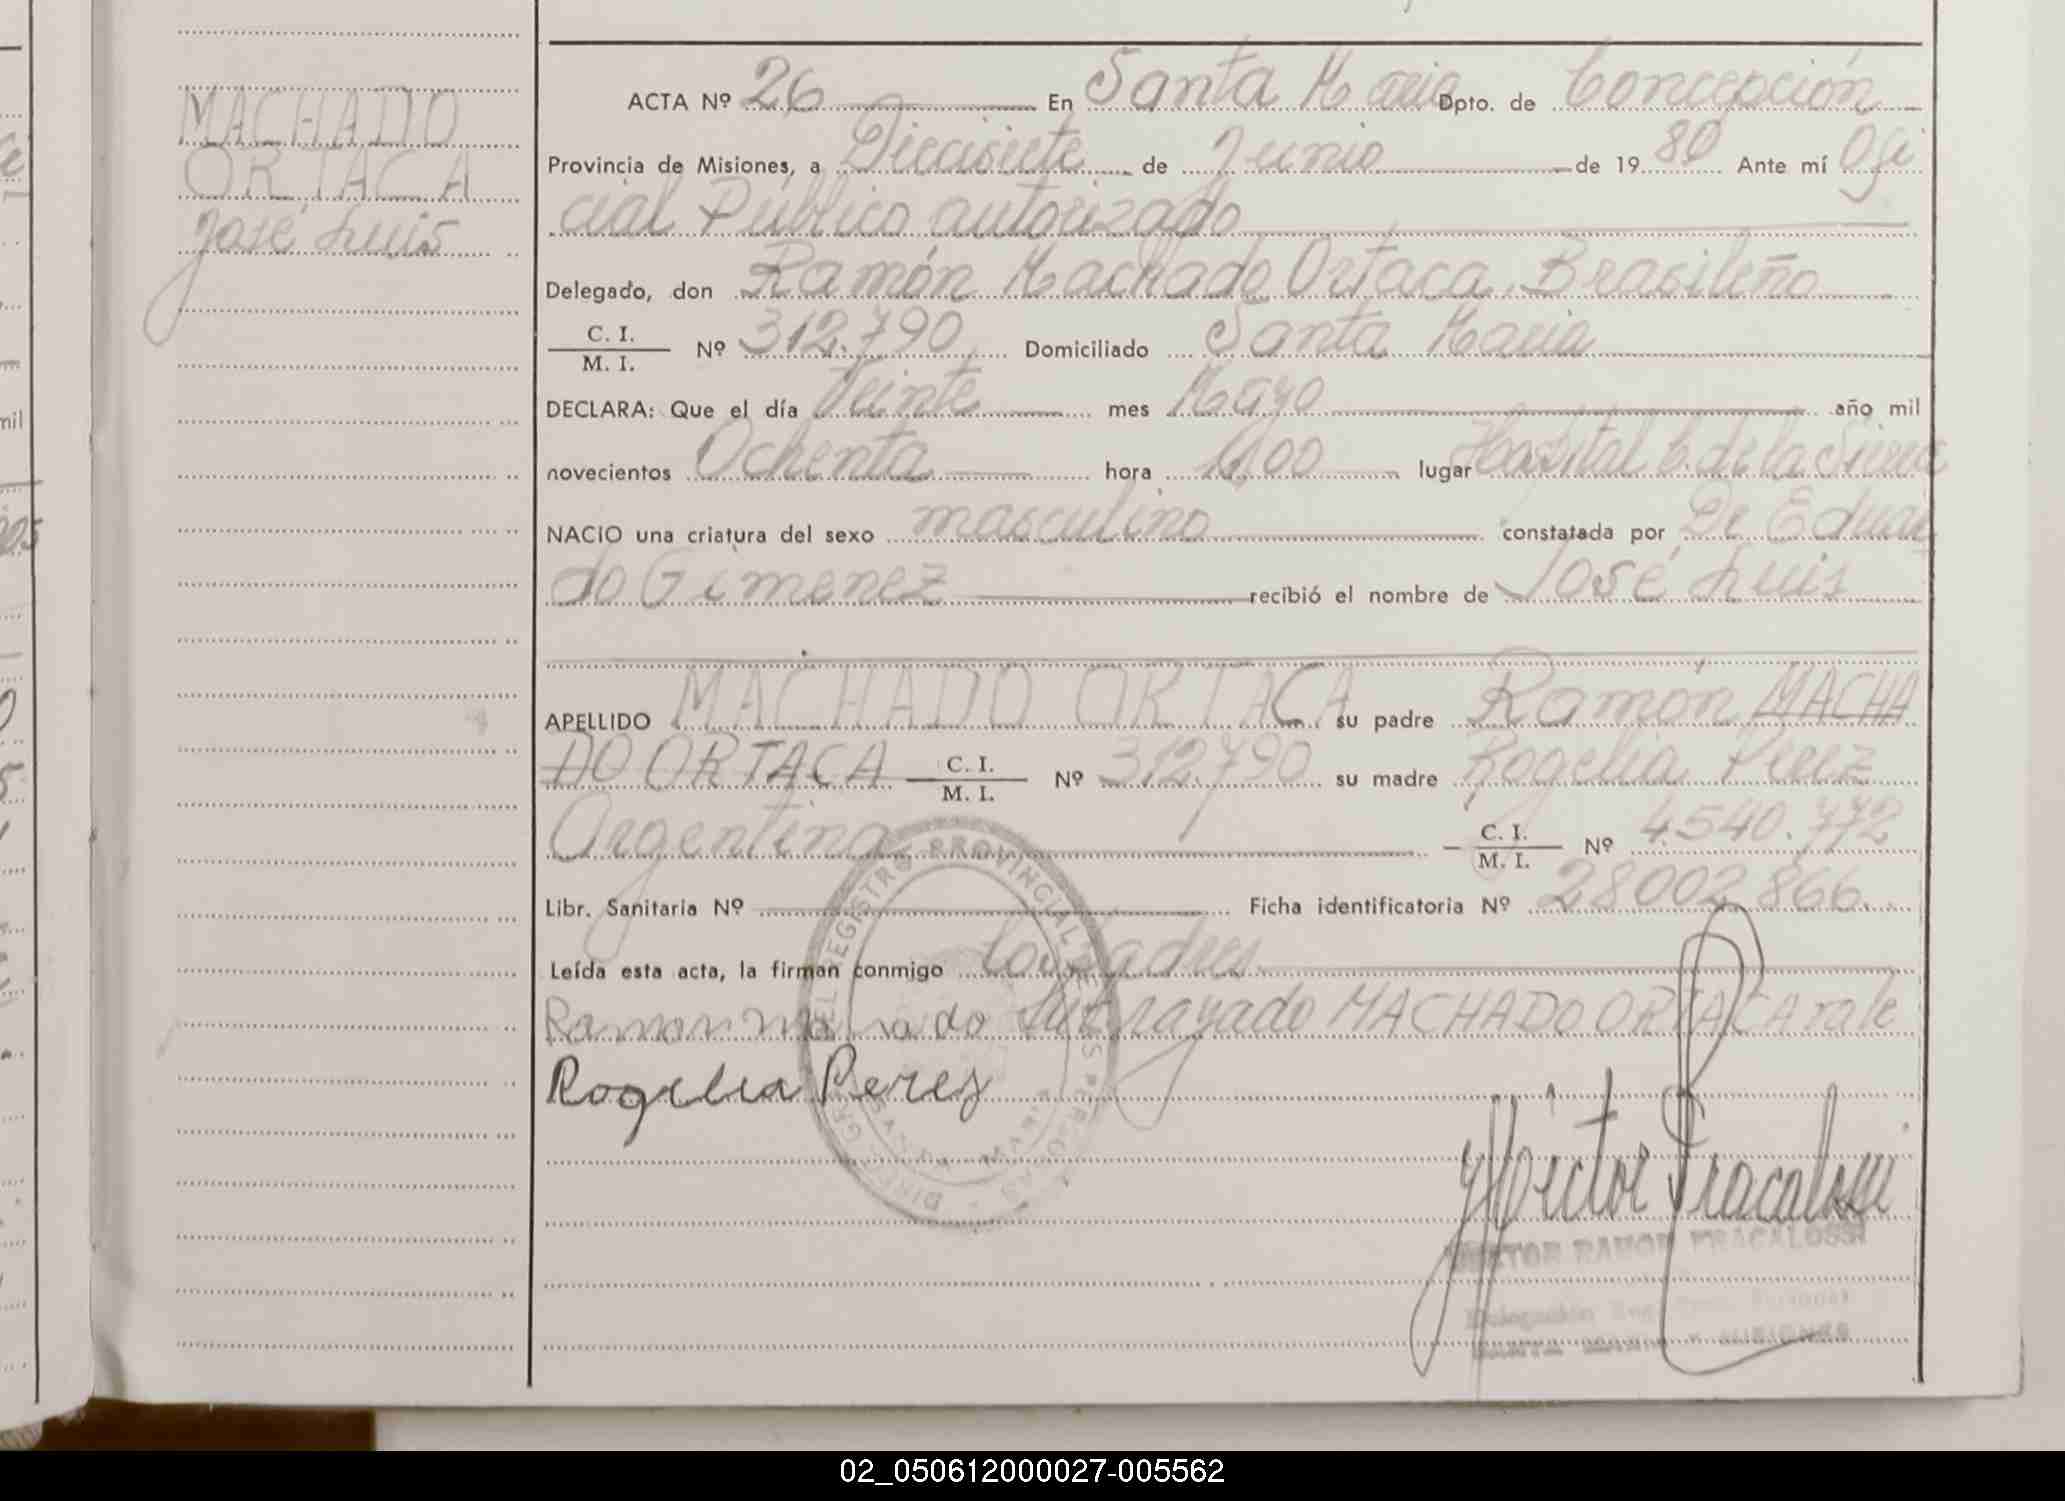 MACHADO
ORTACA
José Luis
ACTA Nº 26 En Santa Maria Dpto. de Concepción
Provincia de Misiones, a Diecisiete de Junio de 1980 Ante mí Ofi
cial Público autorizado
Delegado, don Ramón Machado Ortaca, Brasileño
C. I.
M. I. Nº 312.790 Domiciliado Santa Maria
DECLARA: Que el día Veinte mes Mayo año mil
novecientos Ochenta hora lugar Hospital C. de la Sierra
NACIO una criatura del sexo masculino constatada por Dr Eduar
do Gimenez recibió el nombre de José Luis
APELLIDO MACHADO ORTACA su padre Ramón MACHA
DO ORTACA C. I. M. I. Nº 312.790 su madre Rogelia Perez
Argentina C. I. M. I. Nº 4.540.772
Libr. Sanitaria Nº Ficha identificatoria Nº 28002866
Leída esta acta, la firman conmigo los padres
Ramon Machado Subrayado MACHADO ORTACA vale
Rogelia Peres
Héctor Fracalossi
HECTOR RAMON FRACALOSSI
SANTA MARIA - MISIONES
DIRECC. GRAL. REGISTRO PROVINCIAL DE LAS PERSONAS
02_050612000027-005562